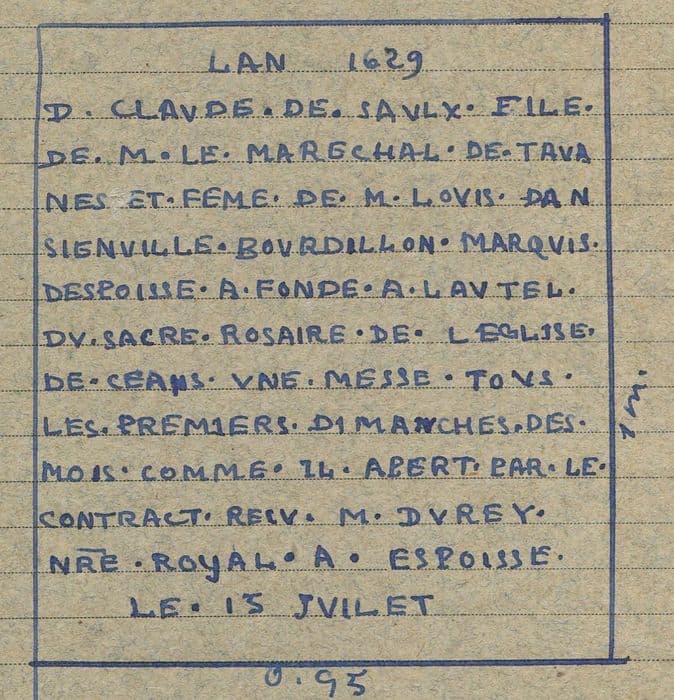 LAN 1629
D. CLAVDE. DE. SAVLX. FILE.
DE. M. LE. MARECHAL. DE. TAVA
NES ET. FEME. DE. M. LOVIS. DAN
SIENVILLE. BOVRDILLON. MARQVIS.
DESPOISSE. A. FONDE. A. LAVTEL.
DV. SACRE. ROSAIRE. DE. LEGLISE.
DE. CEANS. VNE. MESSE. TOVS.
LES. PREMIERS. DIMANCHES. DES.
MOIS. COMME. IL. APERT. PAR. LE.
CONTRACT. RECV. M. DVREY.
NR̄E. ROYAL. A. ESPOISSE.
LE. 15 JVILET
0.95